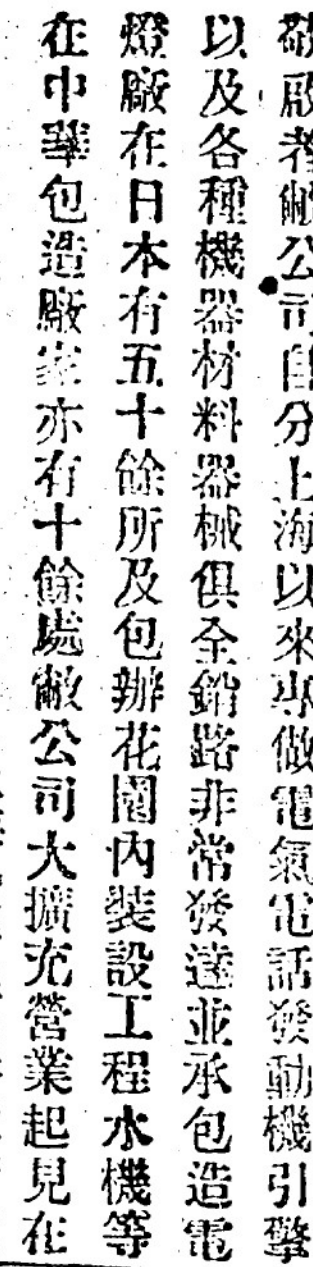 敬啟者敝公司自分上海以來專做電氣電話發動機引擎
以及各種機器材料器械俱全銷路非常發達並承包造電
燈廠在日本有五十餘所及包辦花園內裝設工程水機等
在中華包造廠家亦有十餘處敝公司大擴充營業起見在